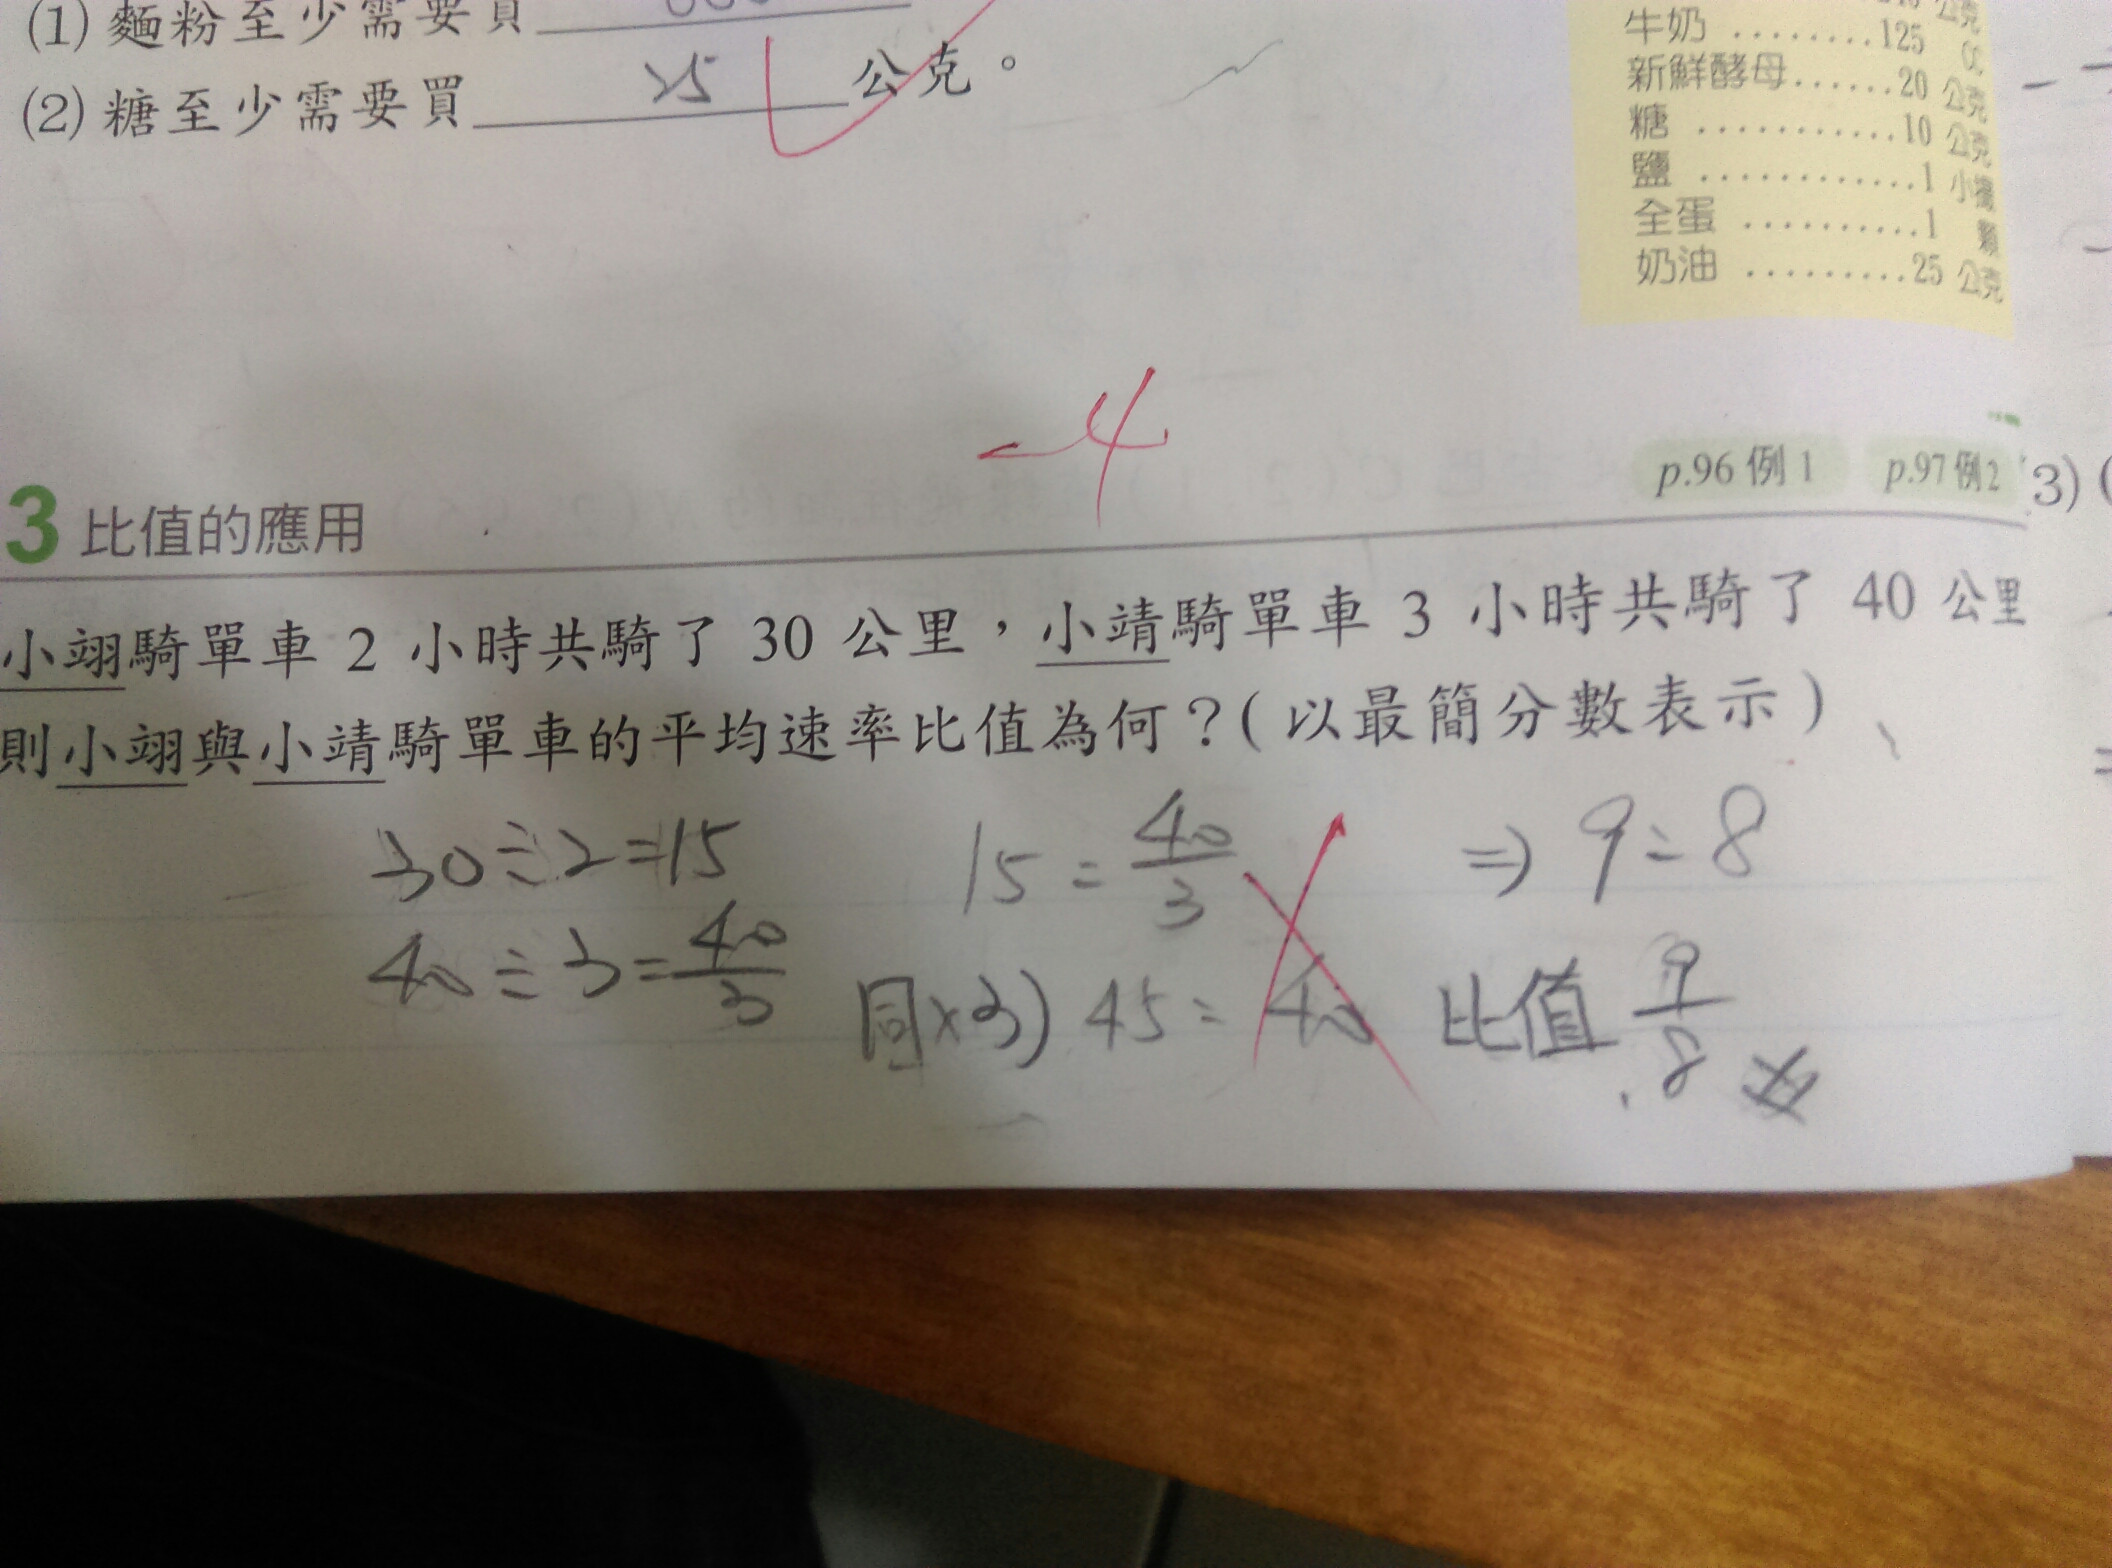 (1) 麵粉至少需要買
(2) 糖至少需要買 25 公克。
牛奶 ........125 cc
新鮮酵母......20 公克
糖 ...........10 公克
鹽 ............1 小
全蛋 ..........1 顆
奶油 .........25 公克
-4
p.96 例 1 p.97 例 2
3 比值的應用
小翊騎單車 2 小時共騎了 30 公里，小靖騎單車 3 小時共騎了 40 公里
則小翊與小靖騎單車的平均速率比值為何？（以最簡分數表示）
30÷2=15
40÷3=40/3
15:40/3
同×3) 45:40
⇒ 9:8
比值 9/8
3) (